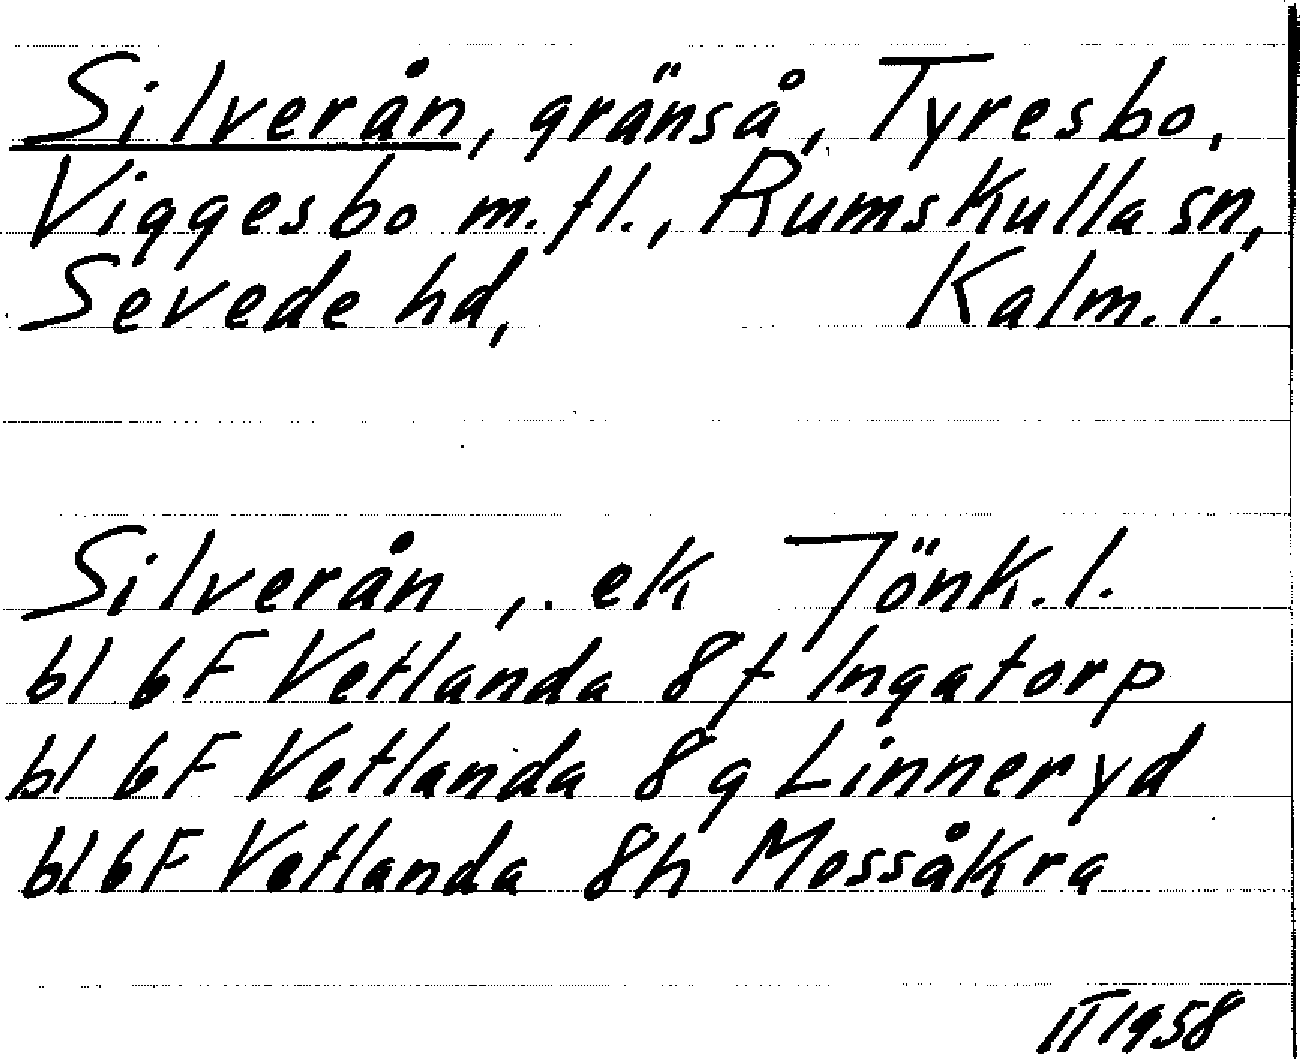 Silverån, gränså, Tyresbo,
Viggesbo m.fl., Rumskulla sn,
Sevede hd, Kalm. l.
Silverån, ek Jönk. l.
bl 6F Vetlanda 8f Ingatorp
bl 6F Vetlanda 8g Linneryd
bl 6F Vetlanda 8h Mossåkra
IT 1958